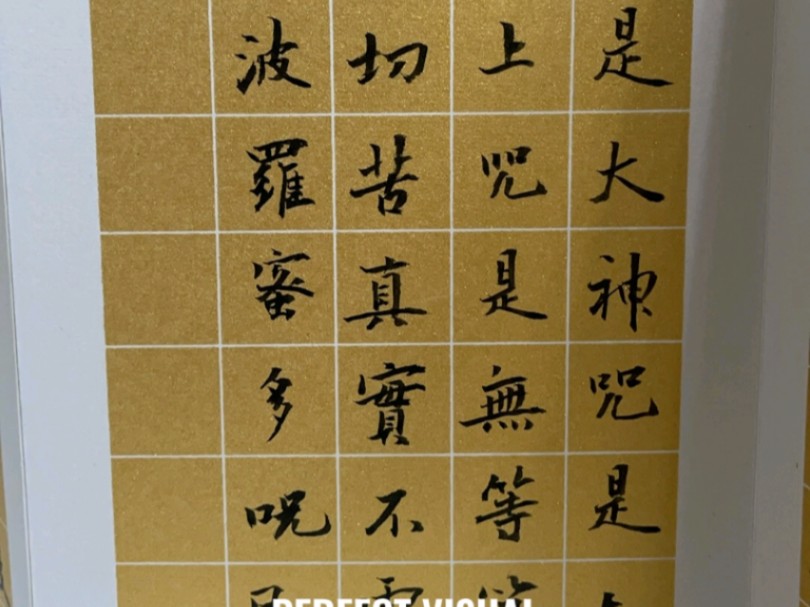 是大神咒是
上咒是無等
切苦真實不
波羅蜜多呪
PERFECT VISUAL